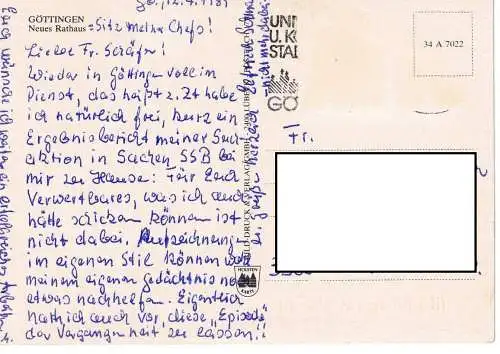 Gö., 12.4.1989
GÖTTINGEN
Neues Rathaus = Sitz meines Chefs!
Liebe Fr. Schäfer!
Wieder in Göttingen voll im
Dienst, das heißt z. Zt habe
ich natürlich frei, kurz ein
Ergebnisbericht meiner Such-
aktion in Sachen SSB bei
mir zu Hause: Für Euch
Verwertbares, was ich auch
hätte schicken können ist
nicht dabei. Aufzeichnungen
im eigenen Stil können nur
meinem eigenen Gedächtnis noch
etwas nachhelfen. Eigentlich
hatte ich auch vor, diese "Episode"
der Vergangenheit zu lassen!!
Euch wünsche ich weiter ein erfolgreiches
nicht mehr dabei
herzlich
UNI
U. K
STAD
GÖ
34 A 7022
Fr.
BILD-DRUCK & VERLAG GMBH, 2400 LÜBECK
HOLSTEN
KARTE